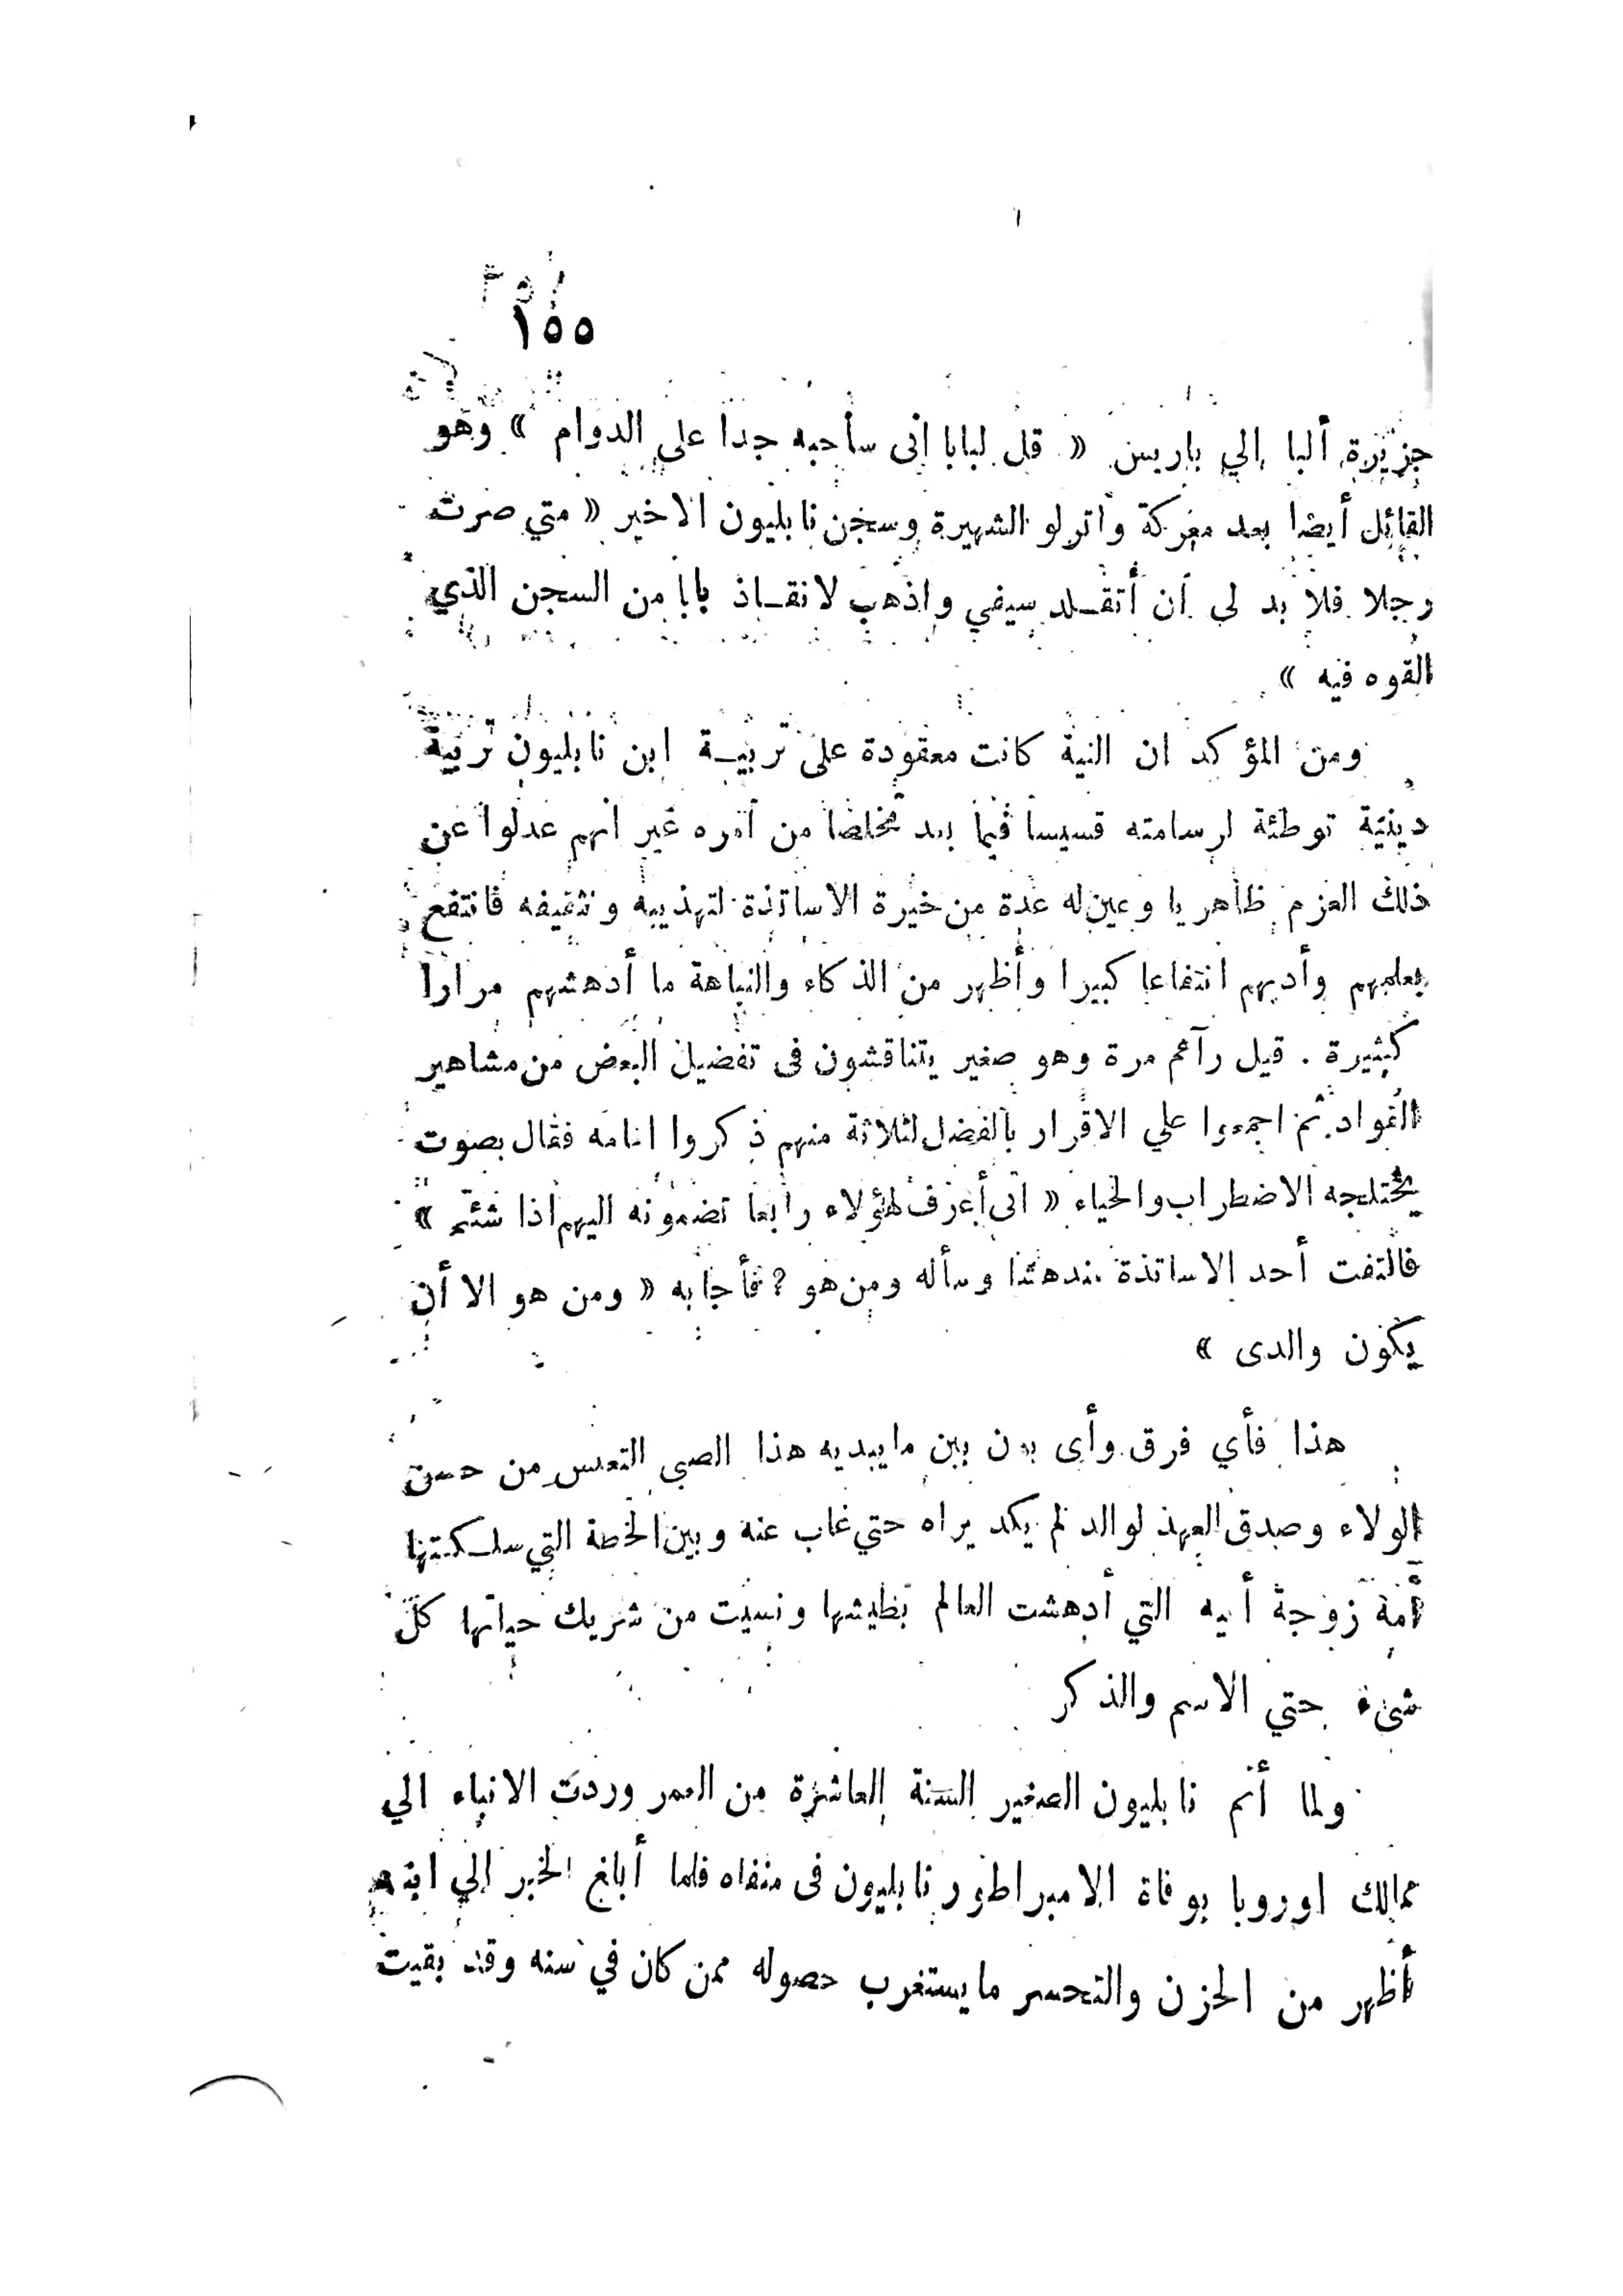 ١٥٥
جزيرة ألبا الي باريس « قل لبابا انى سأحبه جدا على الدوام » وهو
القائل أيضا بعد معركة واترلو الشهيرة وسجن نابليون الاخير « متي صرت
رجلا فلا بد لى أن أتقلد سيفي واذهب لانقاذ بابا من السجن الذي
القوه فيه »
ومن المؤكد ان النية كانت معقودة على تربية ابن نابليون تربية
دينية توطئة لرسامته قسيسا فيما بعد تخلصا من أمره غير انهم عدلوا عن
ذلك العزم ظاهريا وعين له عدة من خيرة الاساتذة لتهذيبه وتثقيفه فانتفع
بعلمهم وأدبهم انتفاعا كبيرا وأظهر من الذكاء والنباهة ما أدهشهم مرارا
كثيرة . قيل رآهم مرة وهو صغير يتناقشون فى تفضيل البعض من مشاهير
القواد ثم اجمعوا علي الاقرار بالفضل لثلاثة منهم ذكروا امامه فقال بصوت
يختلجه الاضطراب والحياء « انى أعرف لهؤلاء رابعا تضمونه اليهم اذا شئتم »
فالتفت أحد الاساتذة مندهشا وسأله ومن هو ? فأجابه « ومن هو الا أن
يكون والدى »
هذا فأي فرق وأى بون بين ما يبديه هذا الصبي التعس من حسن
الولاء وصدق العهد لوالد لم يكد يراه حتي غاب عنه وبين الخطة التي سلكتها
أمه زوجة أبيه التي أدهشت العالم بطيشها ونسيت من شريك حياتها كل
شىء حتي الاسم والذكر
ولما أتم نابليون الصغير السنة العاشرة من العمر وردت الانباء الي
ممالك اوروبا بوفاة الامبراطور نابليون فى منفاه فلما أبلغ الخبر الي ابنه
أظهر من الحزن والتحسر ما يستغرب حصوله ممن كان في سنه وقد بقيت